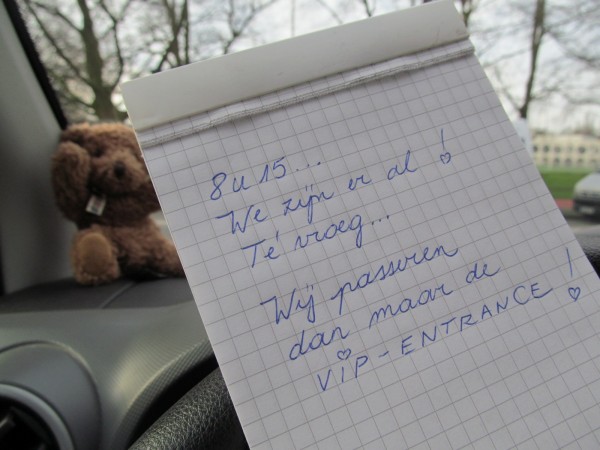 8u15...
We zijn er al!
Té vroeg...
Wij passeren
dan maar de
ViP-ENTRANCE!